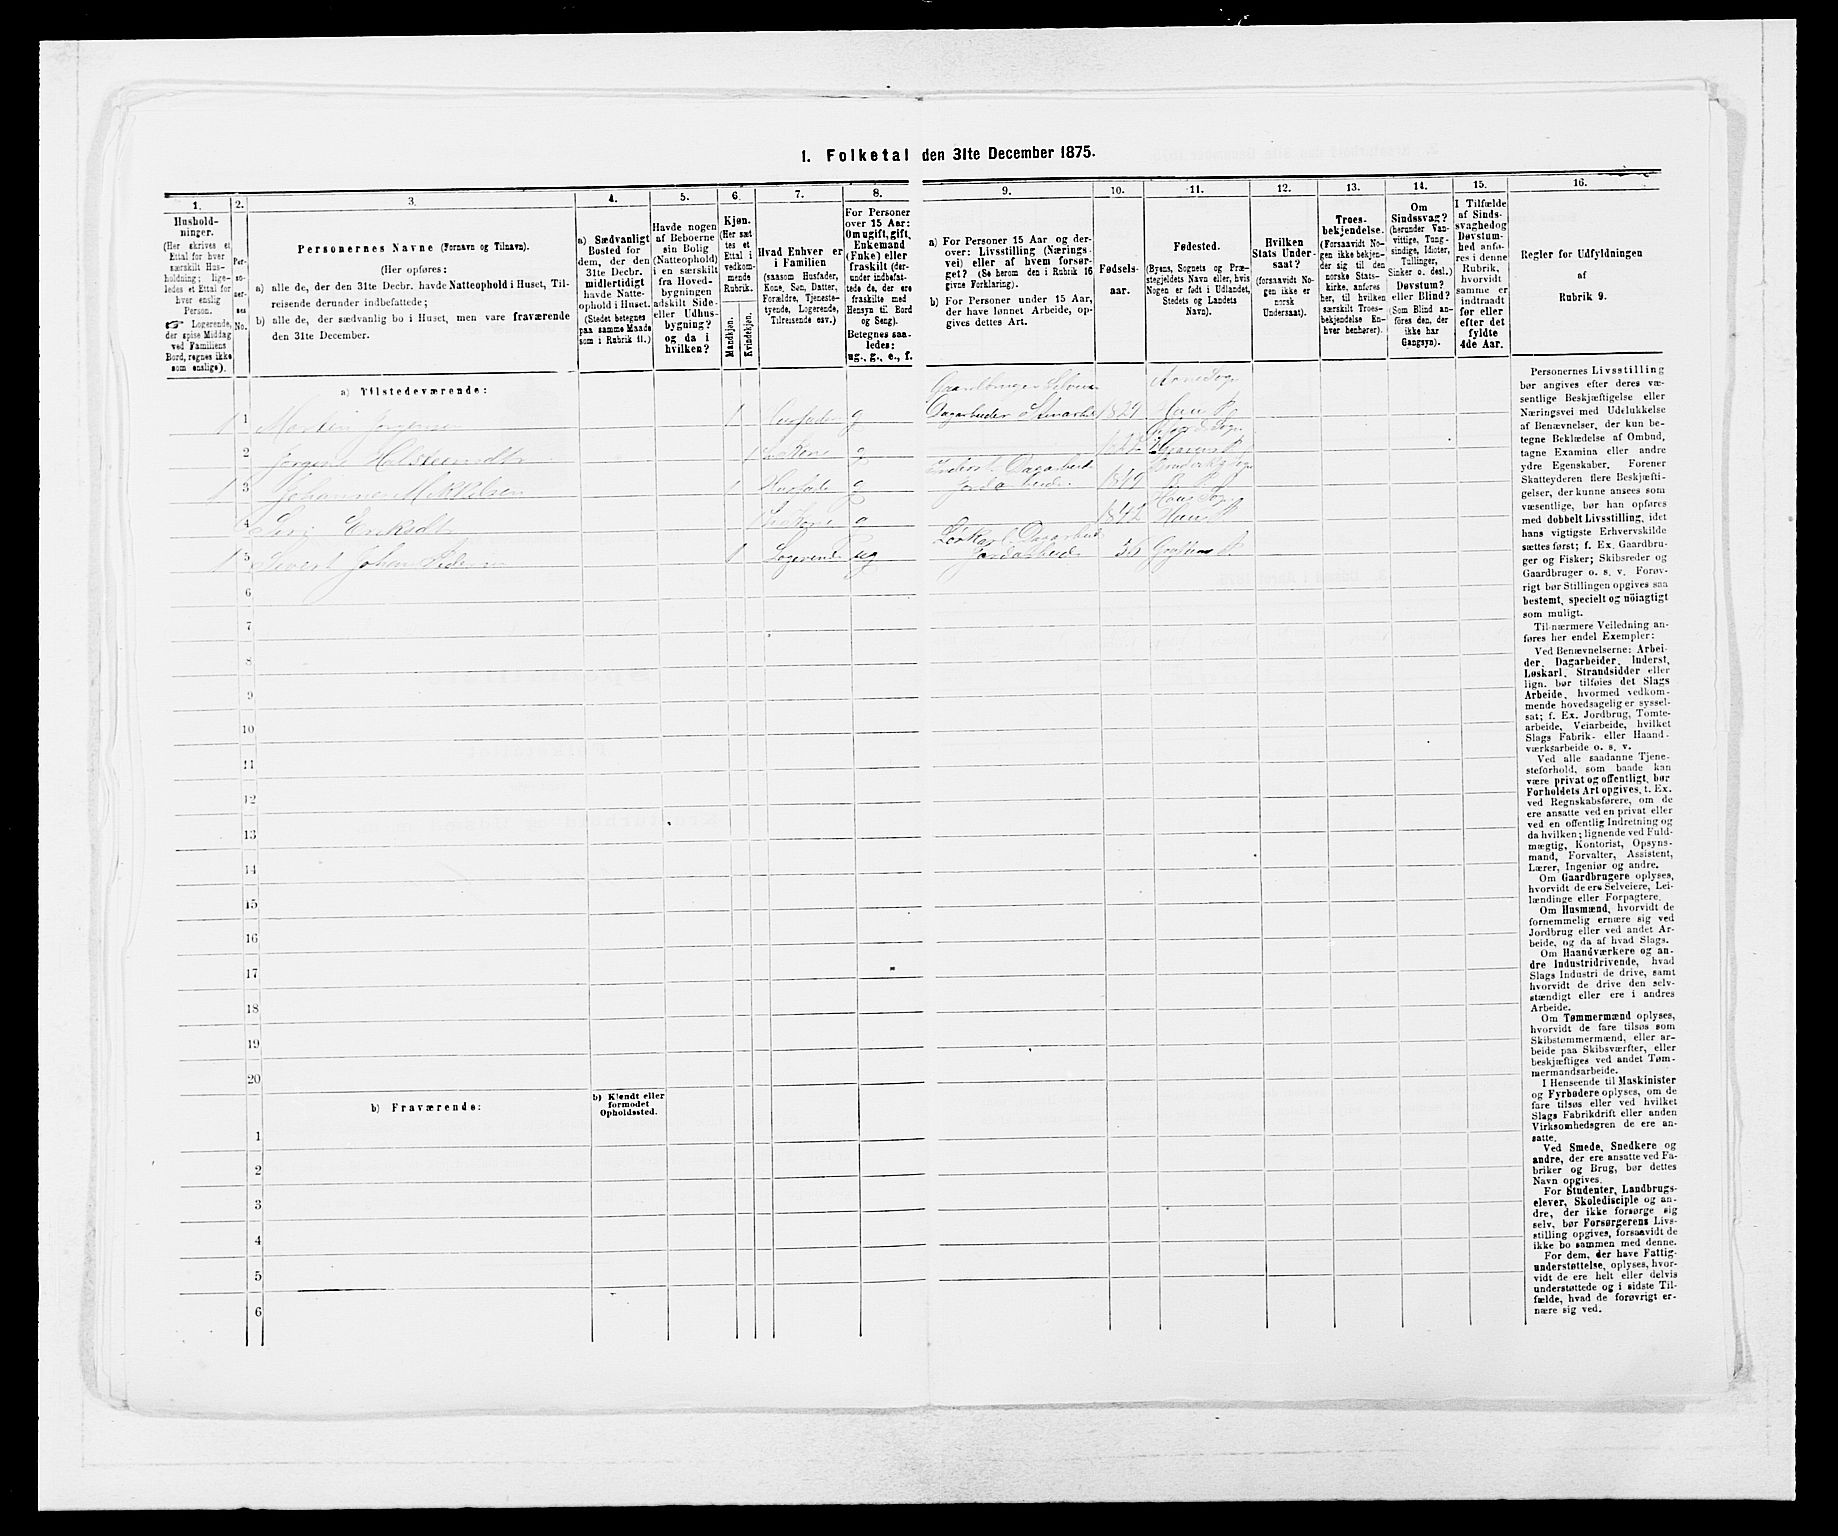 1. Folketal den 31te December 1875.
1.
Hushold-
ninger.
(Her skrives et
Ettal for hver
særskilt Hus-
holdning; lige-
ledes et Ettal for
hver enslig
Person.
☞ Logerende,
der spise Middag
ved Familiens
Bord, regnes ikke
som enslige).
2.
Per-
so-
ner-
nes
No.
3.
Personernes Navne (Fornavn og Tilnavn).
(Her opføres:
a) alle de, der den 31te Decbr. havde Natteophold i Huset, Til-
reisende derunder indbefattede;
b) alle de, der sædvanlig bo i Huset, men vare fraværende
den 31te December.
4.
a) Sædvanligt
Bosted for
dem, der den
31te Decbr.
midlertidigt
havde Natte-
ophold i Huset.
(Stedet betegnes
paa samme Maade
som i Rubrik 11.)
5.
Havde nogen
af Beboerne
sin Bolig
(Natteophold)
i en særskilt
fra Hoved-
bygningen
adskilt Side-
eller Udhus-
bygning?
og da i
hvilken?
6.
Kjøn.
(Her sæt-
tes et
Ettal i
vedkom-
mende
Rubrik.
Mandkjøn.
Kvindekjøn.
7.
Hvad Enhver er
i Familien
(saasom Husfader,
Kone, Søn, Datter,
Forældre, Tjeneste-
tyende, Logerende,
Tilreisende osv.)
8.
For Personer
over 15 Aar:
Om ugift, gift,
Enkemand
(Enke) eller
fraskilt (der-
under indbefat-
tede de, der ere
fraskilte med
Hensyn til Bord
og Seng).
Betegnes saa-
ledes:
ug., g., e., f.
9.
a) For Personer 15 Aar og der-
over: Livsstilling (Nærings-
vei) eller af hvem forsør-
get? (Se herom den i Rubrik 16
givne Forklaring).
b) For Personer under 15 Aar,
der have lønnet Arbeide, op-
gives dettes Art.
10.
Fødsels-
aar.
11.
Fødested.
(Byens, Sognets og Præ-
stegjeldets Navn eller, hvis
Nogen er født i Udlandet,
Stedets og Landets
Navn).
12.
Hvilken
Stats Under-
saat?
(forsaavidt No-
gen ikke er
norsk
Undersaat).
13.
Troes-
bekjendelse.
(Forsaavidt No-
gen ikke bekjen-
der sig til den
norske Stats-
kirke, anføres
her, til hvilken
særskilt Troes-
bekjendelse En-
hver henhører).
14.
Om
Sindssvag?
(herunder Van-
vittige, Tung-
sindige, Idioter,
Tullinger,
Sinker o. desl.)
Døvstum?
eller Blind?
(Som Blind an-
føres den, der
ikke har
Gangsyn).
15.
I Tilfælde
af Sinds-
svaghed og
Døvstum-
hed anfø-
res i denne
Rubrik,
hvorvidt
samme er
indtraadt
før eller
efter det
fyldte
4de Aar.
16.
Regler for Udfyldningen
af
Rubrik 9.
a) Tilstedeværende:
1 1 Martin 1 Husfader g Dagarbeider 1829
2 Jørgine 1 Kone g
1 3 Johannes Mikkelsen 1 Husfader g Inderst Dagarbeid 1849
4 Siri 1 Kone g 1842
1 5 Sivert Johan 1 Logerende ug Løskarl Dagarbeid
6
7
8
9
10
11
12
13
14
15
16
17
18
19
20
b) Fraværende:
b) Kjendt eller
formodet
Opholdssted.
1
2
3
4
5
6
Personernes Livsstilling
bør angives efter deres væ-
sentlige Beskjæftigelse eller
Næringsvei med Udelukkelse
af Benævnelser, der kun be-
tegne Beklædelse af Ombud,
tagne Examina eller andre
ydre Egenskaber. Forener
Skatteyderen flere Beskjæfti-
gelser, der kunne ansees som
væsentlige, bør han opføres
med dobbelt Livsstilling, idet
hans vigtigste Erhvervskilde
sættes først; f. Ex. Gaardbru-
ger og Fisker; Skibsreder og
Gaardbruger o. s. v. Forøv-
rigt bør Stillingen opgives saa
bestemt, specielt og nöiagtigt
som muligt.
Til nærmere Veiledning an-
føres her endel Exempler:
Ved Benævnelserne: Arbei-
der, Dagarbeider, Inderst,
Løskarl, Strandsidder eller
lign. bør tilføies det Slags
Arbeide, hvormed vedkom-
mende hovedsagelig er syssel-
sat; f. Ex. Jordbrug, Tomte-
arbeide, Veiarbeide, hvilket
Slags Fabrik- eller Haand-
værksarbeide o. s. v.
Ved alle saadanne Tjene-
steforhold, som baade kan
være privat og offentligt, bør
Forholdets Art opgives, t. Ex.
ved Regnskabsførere, om de
ere ansatte ved en privat eller
ved en offentlig Indretning og
da hvilken; lignende ved Fuld-
mægtig, Kontorist, Opsyns-
mand, Forvalter, Assistent,
Lærer, Ingeniør og andre.
Om Gaardbrugere oplyses,
hvorvidt de ere Selveiere, Lei-
lændinge eller Forpagtere.
Om Husmænd, hvorvidt de
fornemmelig ernære sig ved
Jordbrug eller ved andet Ar-
beide, og da af hvad Slags.
Om Haandværkere og an-
dre Industridrivende, hvad
Slags Industri de drive, samt
hvorvidt de drive den selv-
stændigt eller ere i andres
Arbeide.
Om Tømmermænd oplyses,
hvorvidt de fare tilsøs som
Skibstømmermænd, eller ar-
beide paa Skibsværfter, eller
beskjæftiges ved andet Tøm-
mermandsarbeide.
I Henseende til Maskinister
og Fyrbødere oplyses, om de
fare tilsøs eller ved hvilket
Slags Fabrikdrift eller anden
Virksomhedsgren de ere an-
satte.
Ved Smede, Snedkere og
andre, der ere ansatte ved Fa-
briker og Brug, bør dettes
Navn opgives.
For Studenter, Landbrugs-
elever, Skoledisciple og an-
dre, der ikke forsørge sig
selv, bør Forsørgerens Livs-
stilling opgives, forsaavidt de
ikke bo sammen med denne.
For dem, der have Fattig-
understøttelse, oplyses, hvor-
vidt de ere helt eller delvis
understøttede og i sidste Til-
fælde, hvad de forøvrigt er-
nære sig ved.